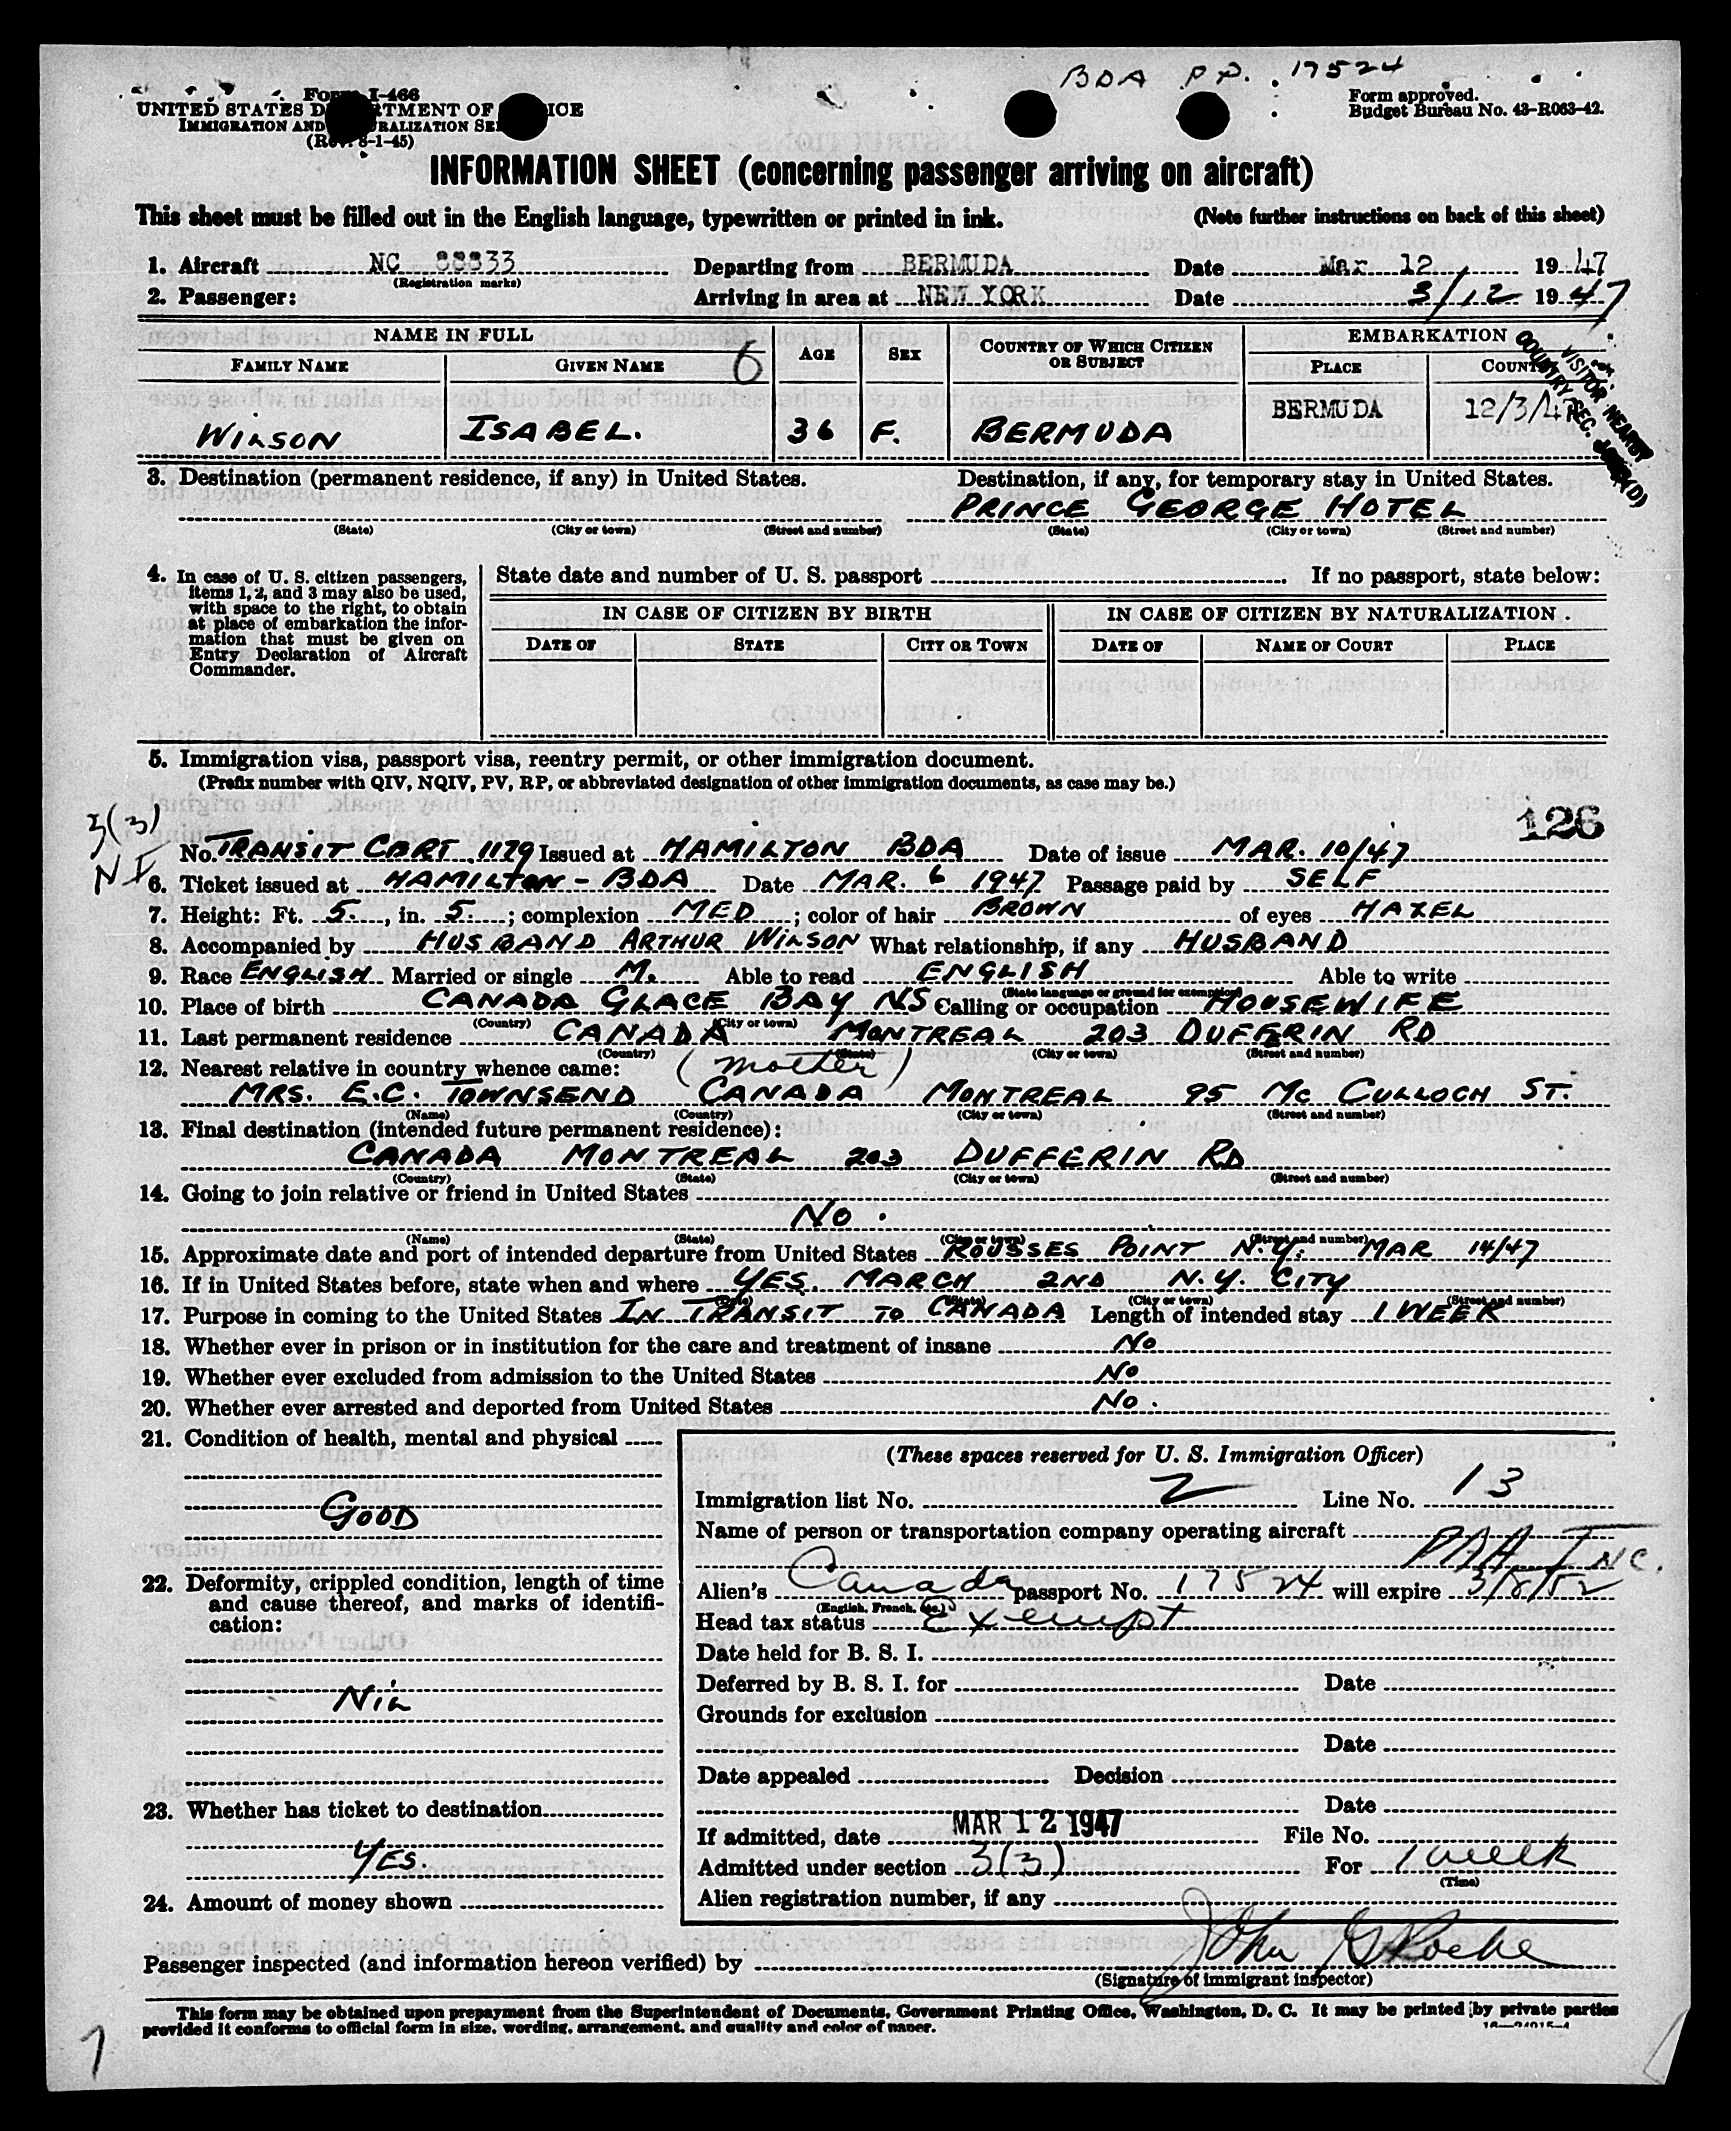 BDA P.P. 17524
Form I-466
UNITED STATES DEPARTMENT OF JUSTICE
IMMIGRATION AND NATURALIZATION SERVICE
(Rev. 8-1-45)
Form approved.
Budget Bureau No. 43-R063-42.
INFORMATION SHEET (concerning passenger arriving on aircraft)
This sheet must be filled out in the English language, typewritten or printed in ink. (Note further instructions on back of this sheet)
1. Aircraft NC 88833 Departing from BERMUDA Date Mar 12 1947
(Registration marks)
2. Passenger: Arriving in area at NEW YORK Date 3/12 1947
NAME IN FULL AGE SEX COUNTRY OF WHICH CITIZEN OR SUBJECT EMBARKATION
FAMILY NAME GIVEN NAME 6 PLACE COUNTRY
WILSON ISABEL. 36 F. BERMUDA BERMUDA 12/3/47
VISITOR NEARBY
COUNTRY SEC.
3. Destination (permanent residence, if any) in United States. Destination, if any, for temporary stay in United States.
PRINCE GEORGE HOTEL
(State) (City or town) (Street and number) (State) (City or town) (Street and number)
4. In case of U. S. citizen passengers, items 1, 2, and 3 may also be used, with space to the right, to obtain at place of embarkation the information that must be given on Entry Declaration of Aircraft Commander.
State date and number of U. S. passport If no passport, state below:
IN CASE OF CITIZEN BY BIRTH IN CASE OF CITIZEN BY NATURALIZATION
DATE OF STATE CITY OR TOWN DATE OF NAME OF COURT PLACE
5. Immigration visa, passport visa, reentry permit, or other immigration document.
(Prefix number with QIV, NQIV, PV, RP, or abbreviated designation of other immigration documents, as case may be.)
3(3)
126
No. TRANSIT CERT. 1179 Issued at HAMILTON BDA Date of issue MAR. 10/47
6. Ticket issued at HAMILTON - BDA Date MAR. 6 1947 Passage paid by SELF
7. Height: Ft. 5., in. 5.; complexion MED; color of hair BROWN of eyes HAZEL
8. Accompanied by HUSBAND ARTHUR WILSON What relationship, if any HUSBAND
9. Race ENGLISH Married or single M. Able to read ENGLISH Able to write
(State language or ground for exemption)
10. Place of birth CANADA GLACE BAY NS Calling or occupation HOUSEWIFE
(Country) (City or town)
11. Last permanent residence CANADA MONTREAL 203 DUFFERIN RD
(Country) (State) (City or town) (Street and number)
12. Nearest relative in country whence came: (mother)
MRS. E.C. TOWNSEND CANADA MONTREAL 95 MC CULLOCH ST.
(Name) (Country) (City or town) (Street and number)
13. Final destination (intended future permanent residence):
CANADA MONTREAL 203 DUFFERIN RD
(Country) (State) (City or town) (Street and number)
14. Going to join relative or friend in United States
No.
(Name) (State) (City or town) (Street and number)
15. Approximate date and port of intended departure from United States ROUSSES POINT N.Y. MAR 14/47
16. If in United States before, state when and where YES. MARCH 2ND N.Y. CITY
(Date) (State) (City or town) (Street and number)
17. Purpose in coming to the United States IN TRANSIT TO CANADA Length of intended stay 1 WEEK
18. Whether ever in prison or in institution for the care and treatment of insane No
19. Whether ever excluded from admission to the United States No
20. Whether ever arrested and deported from United States No.
21. Condition of health, mental and physical
GOOD
22. Deformity, crippled condition, length of time and cause thereof, and marks of identification:
NIL
23. Whether has ticket to destination
YES.
24. Amount of money shown
(These spaces reserved for U. S. Immigration Officer)
Immigration list No. 2 Line No. 13
Name of person or transportation company operating aircraft PAA INC.
Alien's Canada passport No. 17524 will expire 3/8/52
(English, French, etc.)
Head tax status Exempt
Date held for B. S. I.
Deferred by B. S. I. for Date
Grounds for exclusion
Date
Date appealed Decision
Date
If admitted, date MAR 12 1947 File No.
Admitted under section 3(3) For 1 week
(Time)
Alien registration number, if any
Passenger inspected (and information hereon verified) by John G Roche
(Signature of immigrant inspector)
This form may be obtained upon prepayment from the Superintendent of Documents, Government Printing Office, Washington, D. C. It may be printed by private parties
provided it conforms to official form in size, wording, arrangement, and quality and color of paper. 16—24915-4
1